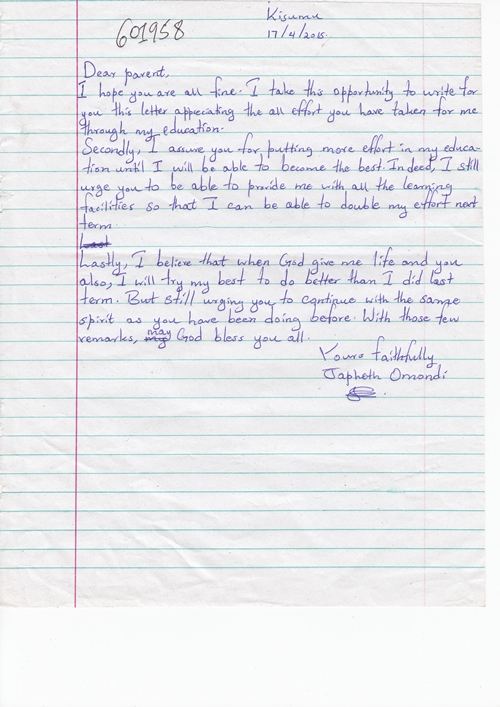 Kisumu
601958
17/4/2015.
Dear parent,
I hope you are all fine. I take this opportunity to write for
you this letter appreciating the all effort you have taken for me
through my education.
Secondly, I assure you for putting more effort in my educa-
tion until I will be able to become the best. Indeed, I still
urge you to be able to provide me with all the learning
facilities so that I can be able to double my effort next
term.
Last
Lastly, I believe that when God give me life and you
also, I will try my best to do better than I did last
term. But still urging you to continue with the same
spirit as you have been doing before. With those few
remarks, may God bless you all.
Yours faithfully
Japheth Omondi